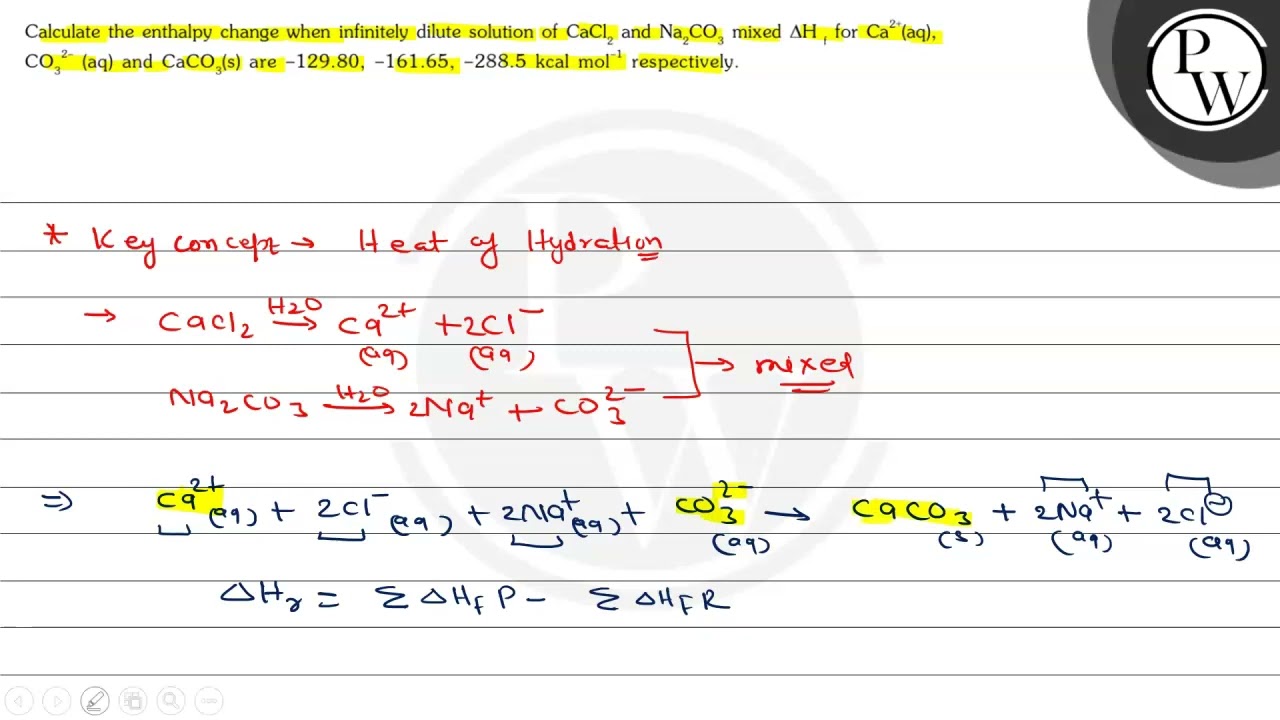 Calculate the enthalpy change when infinitely dilute solution of CaCl₂ and Na₂CO₃ mixed ΔH f for Ca²⁺(aq),
CO₃²⁻ (aq) and CaCO₃(s) are −129.80, −161.65, −288.5 kcal mol⁻¹ respectively.
P
W
* Key concept → Heat of Hydration
→ CaCl₂ H2O → Ca²⁺ (aq) + 2Cl⁻ (aq)
Na₂CO₃ H2O → 2Na⁺ + CO₃²⁻
→ mixed
⇒ Ca²⁺ (aq) + 2Cl⁻ (aq) + 2Na⁺ (aq) + CO₃²⁻ (aq) → CaCO₃ (s) + 2Na⁺ (aq) + 2Cl⊖ (aq)
ΔHr = Σ ΔHf P − Σ ΔHf R